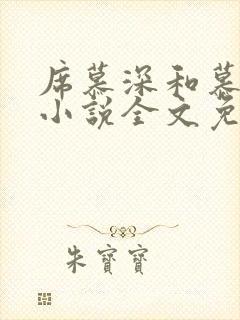 席慕深和慕
小说全文免
朱寶寶